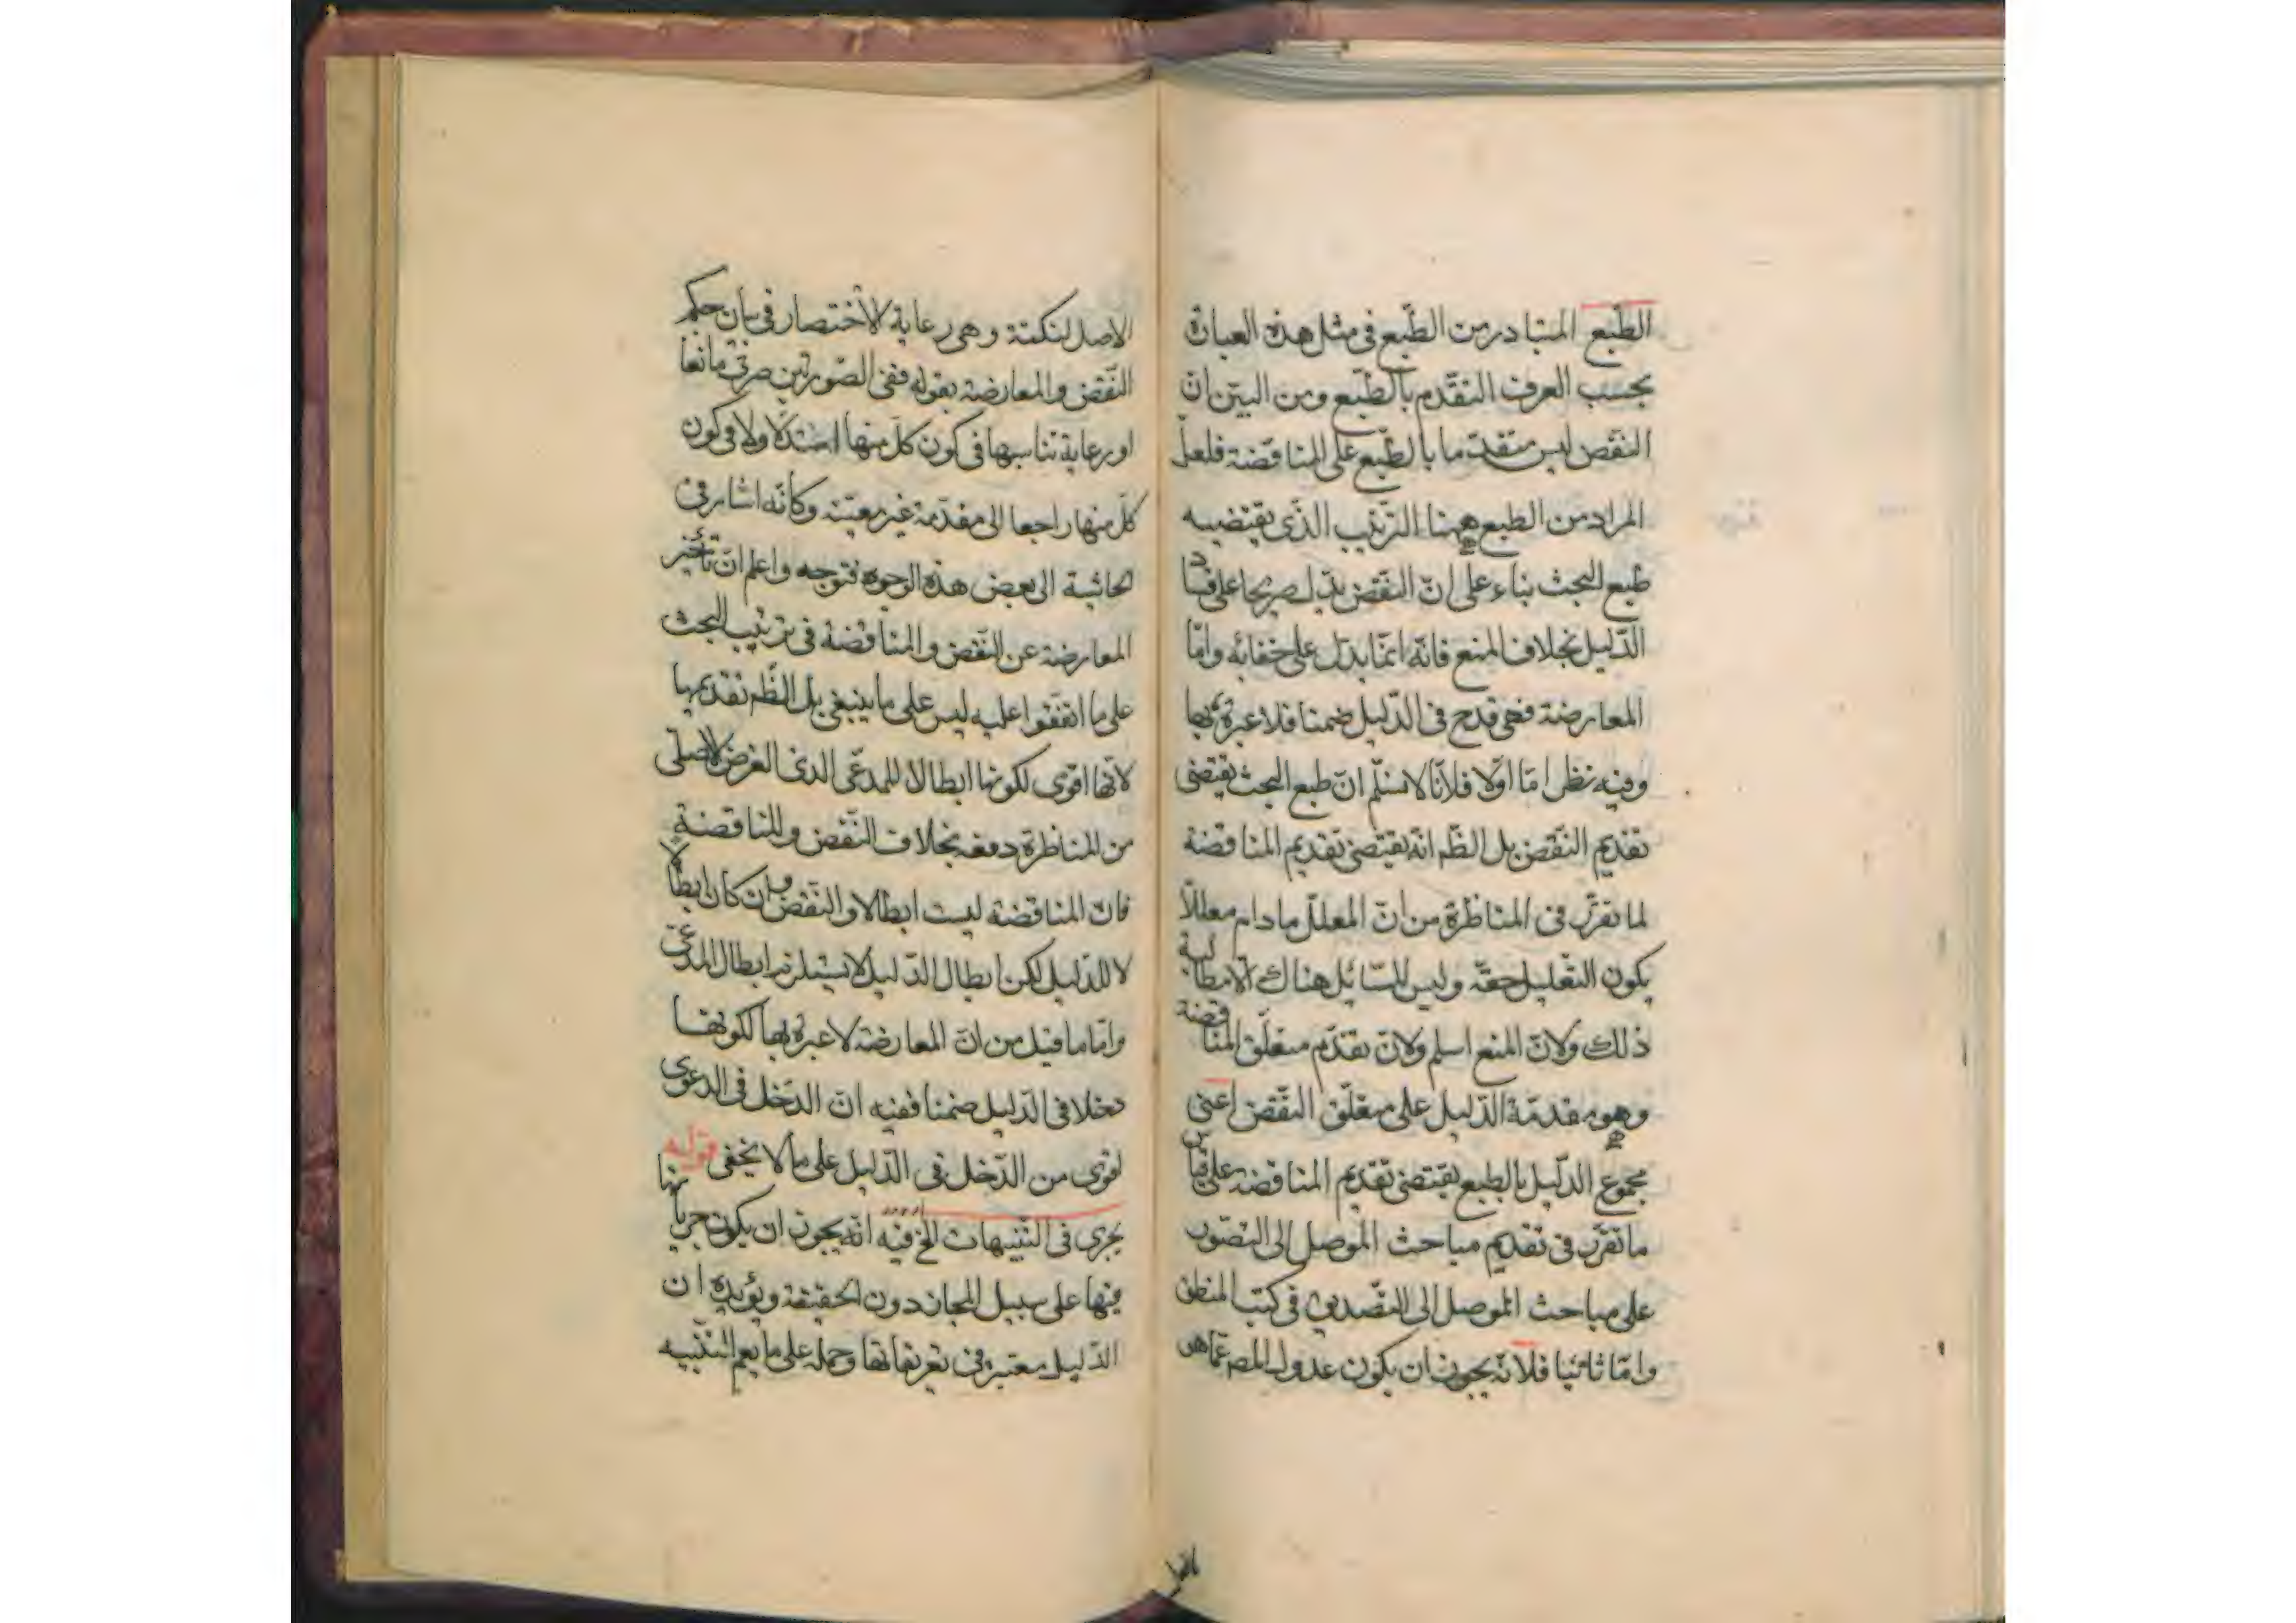 الطبع المتبادر من الطبع فى مثل هذه العبارة
بحسب العرف التقدم بالطبع ومن البين ان
النقض ليس متقدما بالطبع على المناقضة فلعل
المراد من الطبع ههنا الترتيب الذى يقتضيه
طبع البحث بناء على ان النقض يدل صريحا على فساد
الدليل بخلاف المنع فانه انما يدل على خفائه واما
المعارضة فهى قدح فى الدليل ضمنا فلا عبرة بها
وفيه نظر اما اولا فلانا لا نسلم ان طبع البحث يقتضى
تقديم النقض بل الظم انه يقتضى تقديم المناقضة
لما تقرر فى المناظرة من ان المعلل ما دام معللا
يكون التعليل حقه وليس للسائل هناك الا مطالبة
ذلك ولان المنع اسلم ولان تقدم متعلق المناقضة
وهو مقدمة الدليل على متعلق النقض اعنى
مجموع الدليل بالطبع يقتضى تقديم المناقضة على قياس
ما تقرر فى تقديم مباحث الموصل الى التصور
على مباحث الموصل الى التصديق فى كتب المنطق
واما ثانيا فلانه يجوز ان يكون عدول المص عما هو
الاصل لنكتة وهى رعاية الاختصار فى بيان حكم
النقض والمعارضة بقوله ففى الصورتين صرت مانعا
او رعاية تناسبها فى كون كل منها استدلالا وفى كون
كل منها راجعا الى مقدمة غير معينة وكانه اشار فى
الحاشية الى بعض هذه الوجوه فتوجه واعلم ان تأخير
المعارضة عن النقض والمناقضة فى ترتيب البحث
على ما اتفقوا عليه ليس على ما ينبغى بل الظم تقديمها
لانها اقوى لكونها ابطالا للمدعى الذى الغرض الاصلى
من المناظرة دفعه بخلاف النقض والمناقضة
فان المناقضة ليست ابطالا والنقض وان كان ابطالا
لا للدليل لكن ابطال الدليل لا يستلزم ابطال المدعى
واما ما قيل من ان المعارضة لا عبرة بها لكونها
دخلا فى الدليل ضمنا ففيه ان الدخل فى الدعوى
اقوى من الدخل فى الدليل على ما لا يخفى قوله
يجرى فى التنبيهات الخ فيه انه يجوز ان يكون جريانها
فيها على سبيل المجاز دون الحقيقة ويؤيده ان
الدليل معتبر فى تعريفاتها وحمله على ما يعم التنبيه